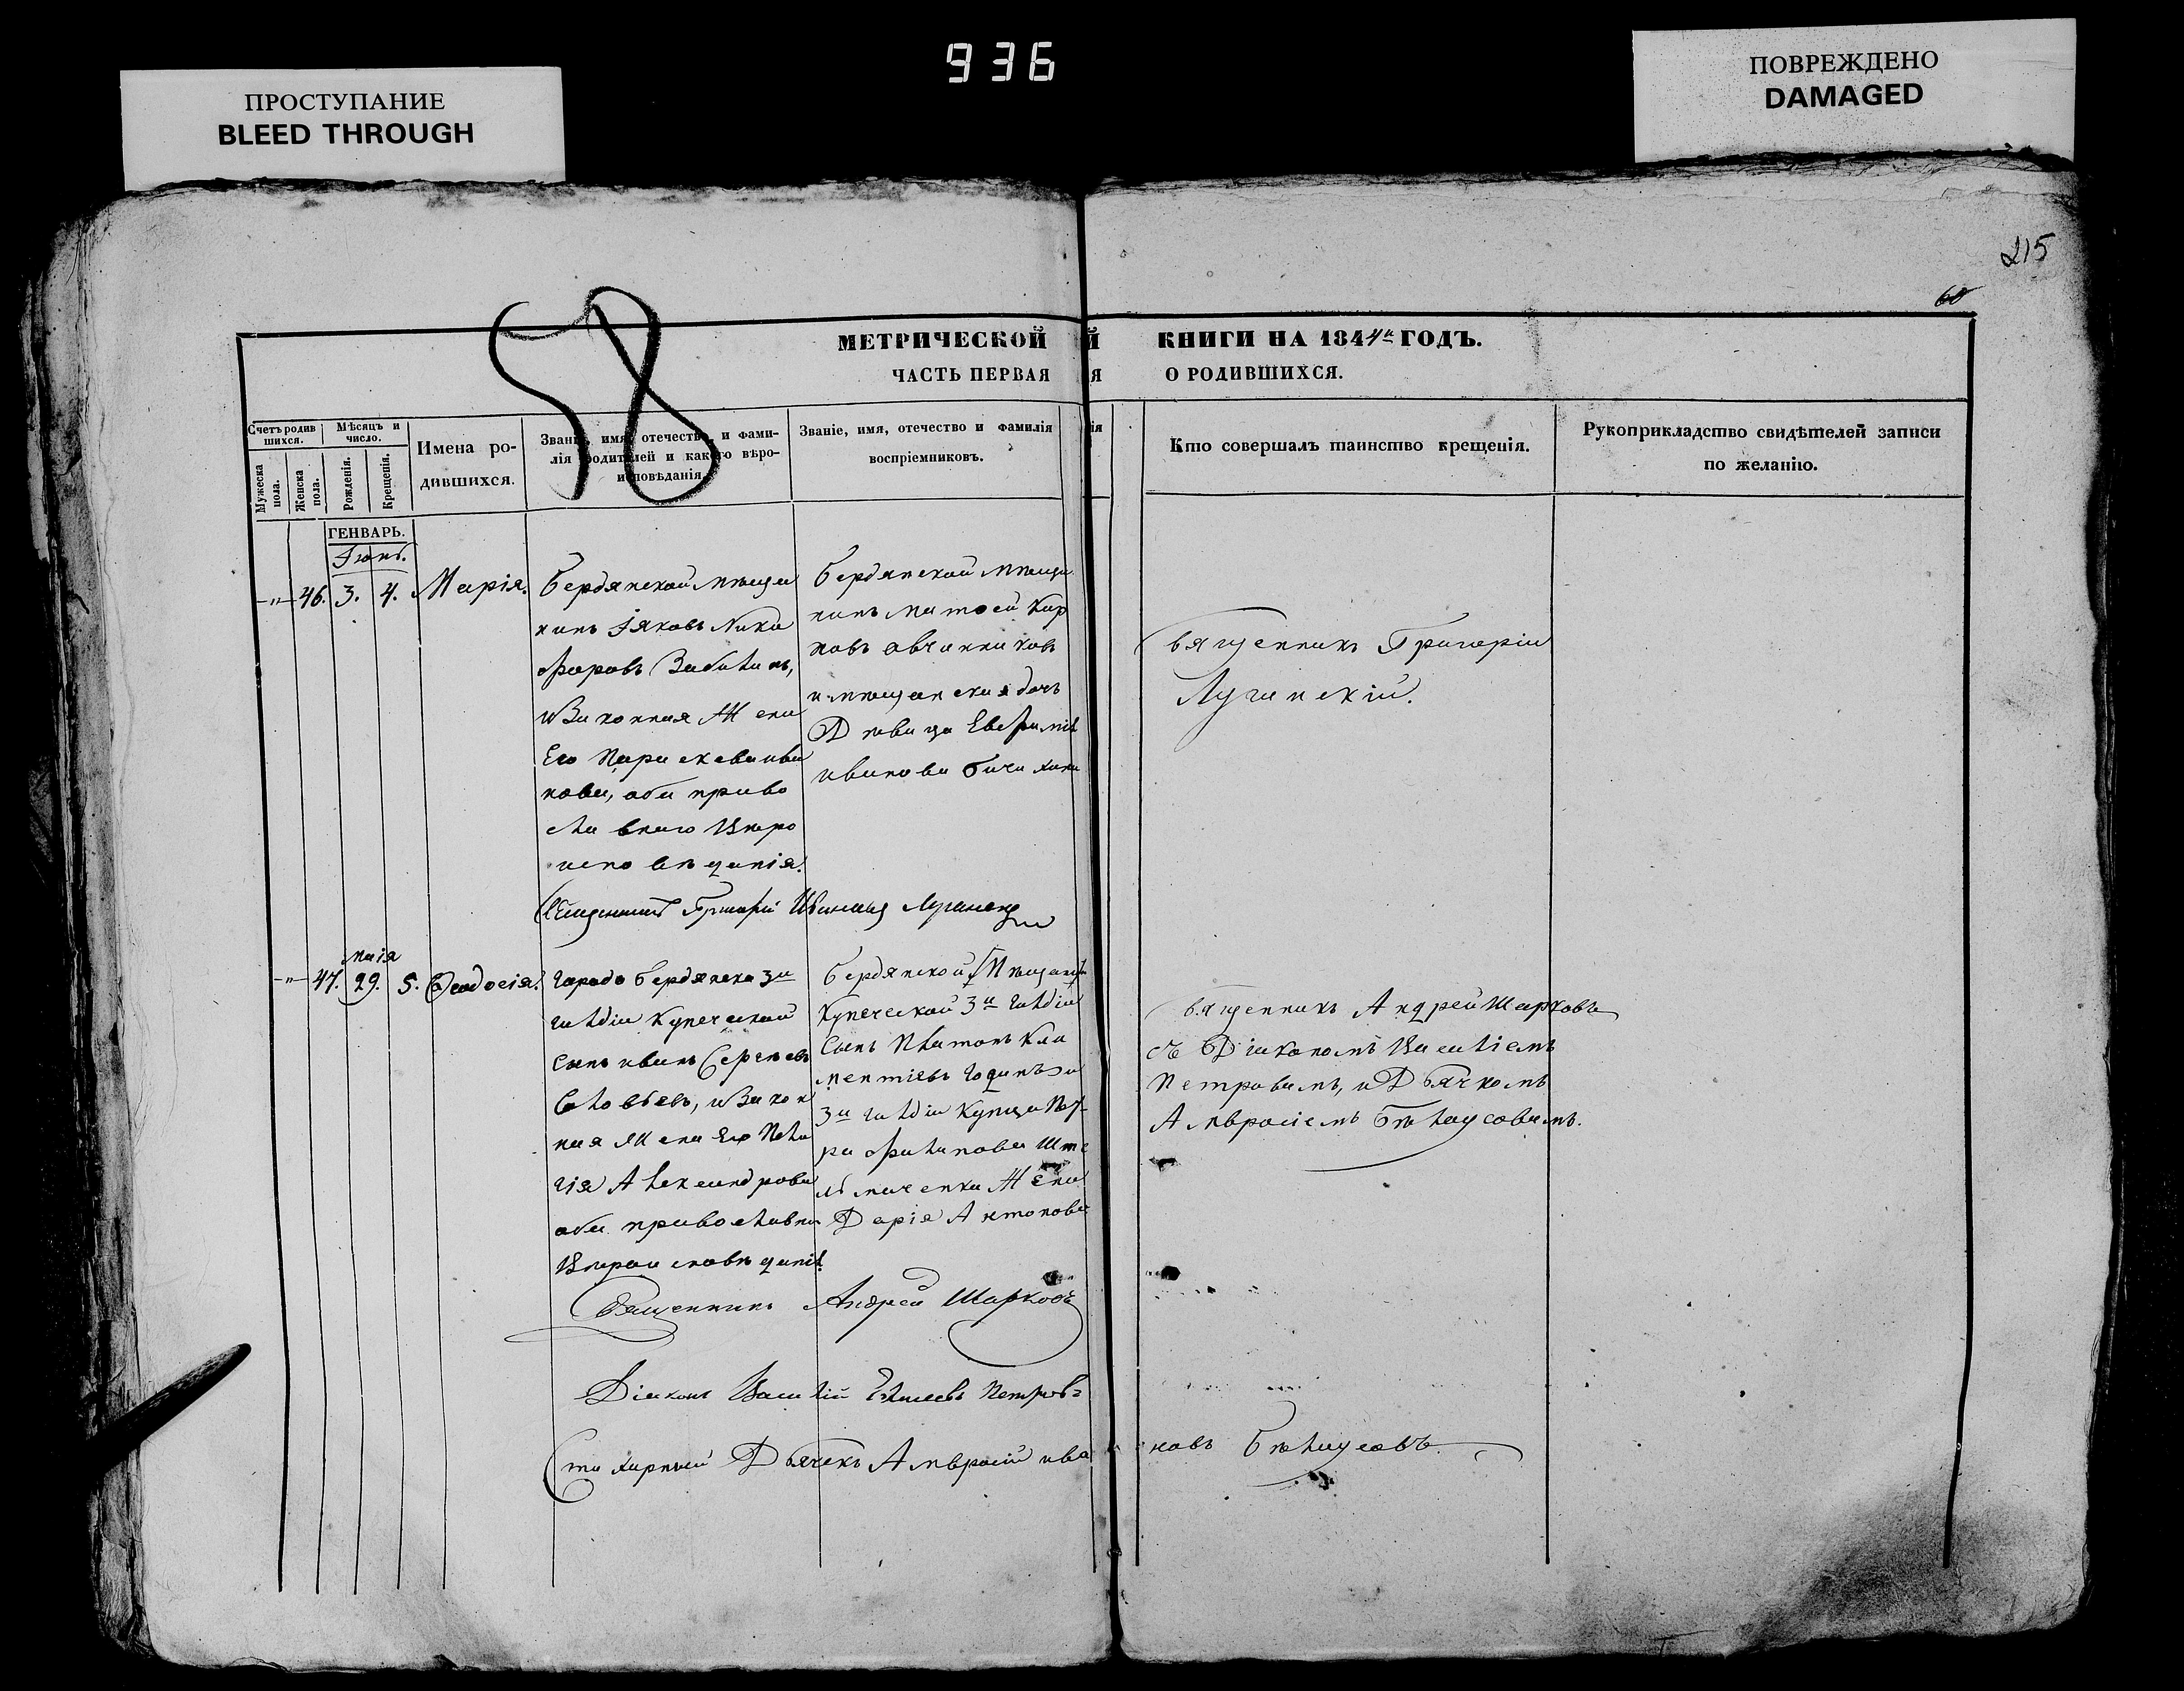 936
ПРОСТУПАНИЕ
BLEED THROUGH
ПОВРЕЖДЕНО
DAMAGED
215
60
58
МЕТРИЧЕСКОЙ Й КНИГИ НА 1844й ГОДЪ.
ЧАСТЬ ПЕРВАЯ Я О РОДИВШИХСЯ.
Счетъ родив
шихся.
Мужеска
пола.
Женска
пола.
Мѣсяцъ и
число.
Рожденія.
Крещенія.
Имена ро-
дившихся.
Званіе, имя, отечество, и фами-
лія родителей и какого вѣро-
исповѣданія.
Званіе, имя, отечество и фамилія
воспріемниковъ.
ія
Кто совершалъ таинство крещенія.
Рукоприкладство свидѣтелей записи
по желанію.
ГЕНВАРЬ.
Іюнь.
-"- 46. 3. 4. Марія.
Бердянской мѣща
нинъ Іяковъ Ники
форовъ
изаконная жена
Его Параскева ива
нова, оба право
славнаго Вѣро
исповѣданія.
Бердянской мѣща
нинъ матвей Кар
повъ овчинниковъ
и мѣщанская дочь
Дѣвица Евфимія
иванова
священникъ Григоріи
Луганскій.
Священникъ Григорій Ивановъ Луганскій
маія
-"- 47. 29. 5. Ѳеодосія.
города бердянска 3й
гилдіи купеческой
сынъ иванъ Сергѣевъ
Соловьевъ, изакон
ная жена Его Пела
гія Александрова
оба православна
Вѣроисповѣданія
бердянской мѣщанинъ
Купеческой 3й гилдіи
сынъ Платонъ Кли
ментіевъ
3й гилдіи Купца Пет
ра Филипова
жена
Дарія Антонова
священникъ Андрей Шарковъ
съ Діакономъ Василіемъ
Петровымъ, и Дьячкомъ
Амвросіемъ Бѣлаусовымъ.
Священникъ Андрей Шарковъ
Діаконъ Василій Петровъ
Стихарный Дьячекъ Амвросій ива новъ Бѣлаусовъ